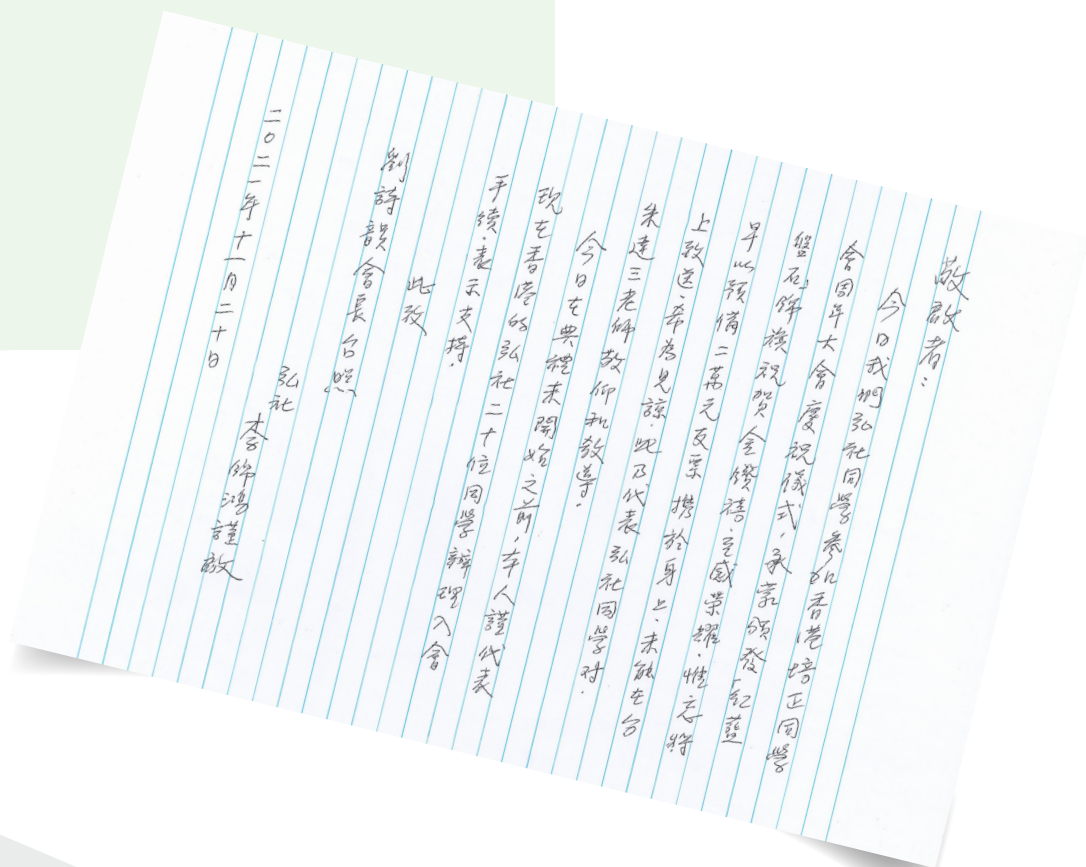 敬啟者：
今日我們弘社同學參加香港培正同學
會周年大會慶祝儀式，承蒙頒發「紅藍
盤石」錦旗祝賀金鑽禧之感榮耀．惟忘將
早以預備二萬元支票攜於身上．未能在台
上致送．希為見諒．此乃代表弘社同學对．
朱達三老師敬仰和教導．
今日在典禮未開始之前，本人謹代表
現在香港的弘社二十位同學辦理入會
手續．表示支持．
此致
劉詩韻會長台照
弘社
李錦鴻謹啟
二〇二一年十一月二十日